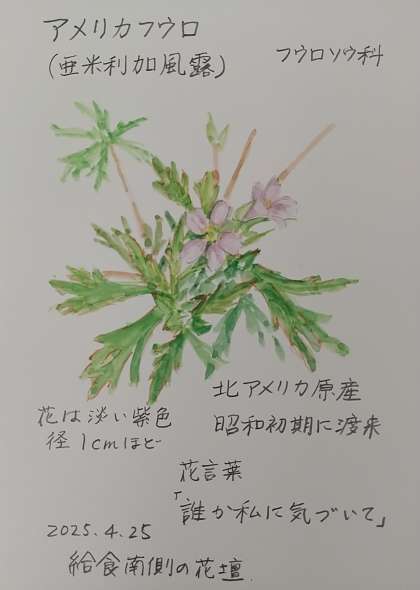 アメリカフウロ
(亜米利加風露)
フウロソウ科
花は淡い紫色
径 1cmほど
北アメリカ原産
昭和初期に渡来
花言葉
「誰か私に気づいて」
2025.4.25
給食南側の花壇